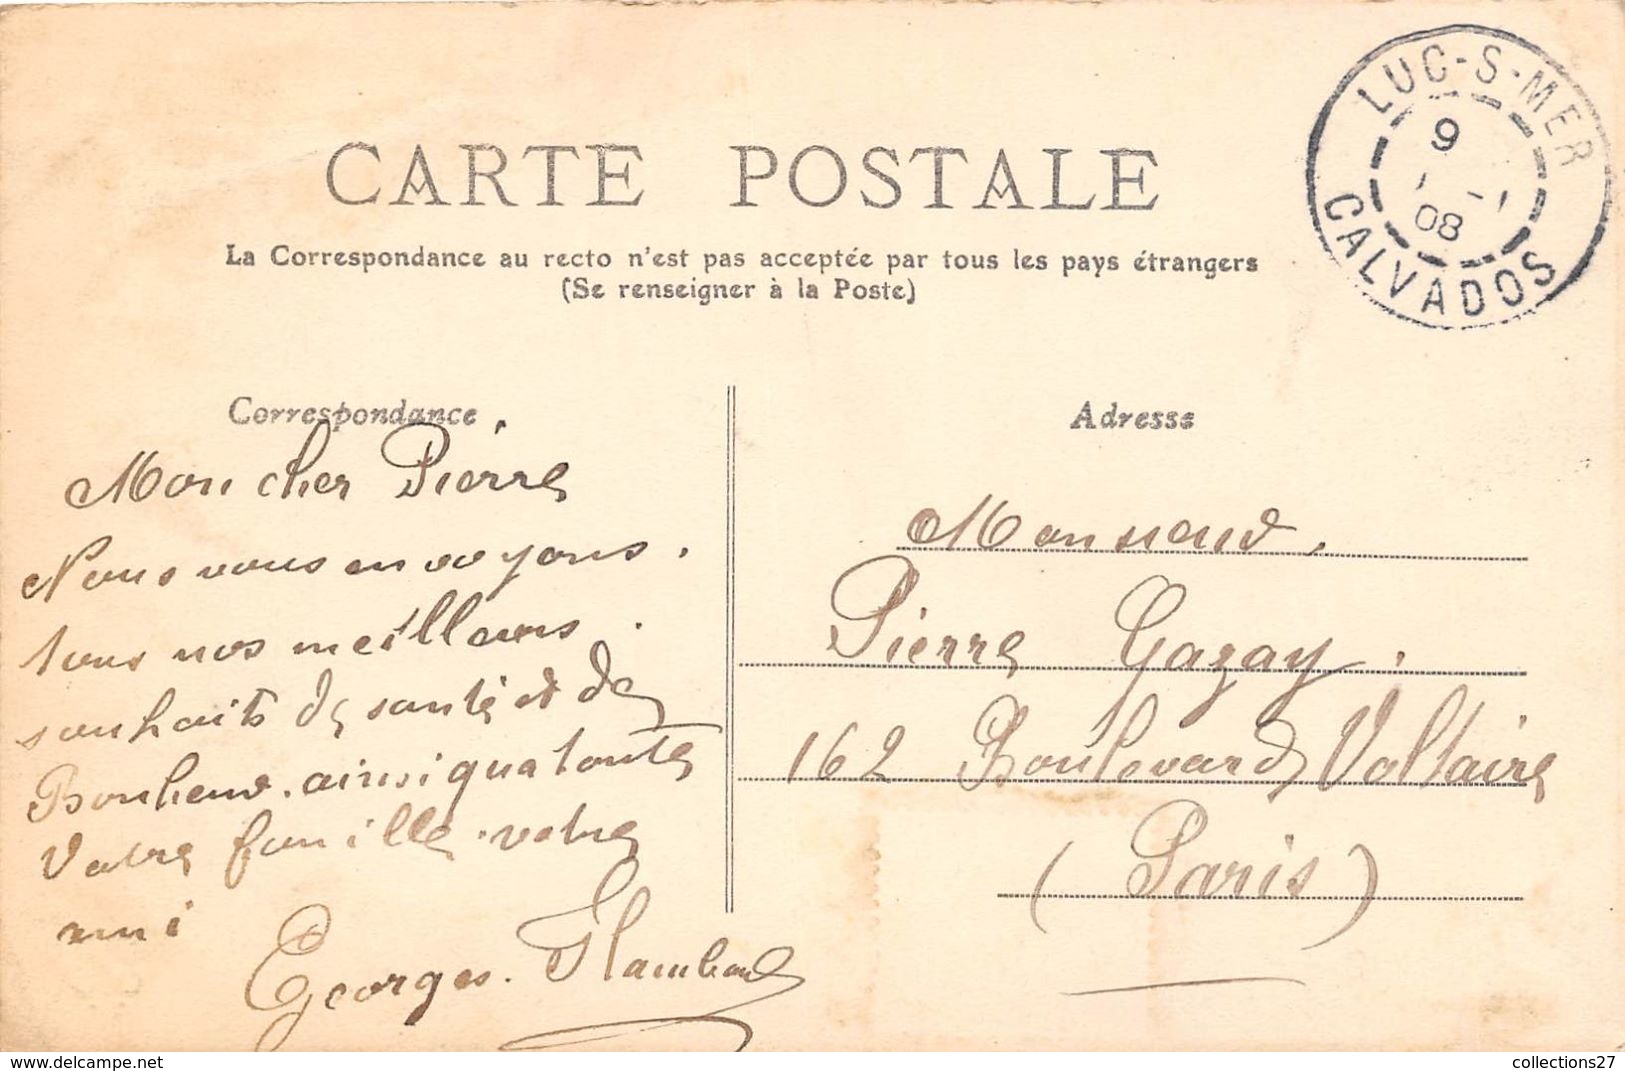 LUC-S-MER
9
08
CALVADOS
CARTE POSTALE
La Correspondance au recto n'est pas acceptée par tous les pays étrangers
(Se renseigner à la Poste)
Correspondance
Mon cher Pierre
Nous vous envoyons.
tous nos meilleurs.
souhaits de santé et de
Bonheur. ainsi qua toute
Votre famille. votre
ami
Georges.
Adresse
Monsieur.
Pierre Gazay.
162 Boulevard Voltaire
(Paris)
delcampe.net
collections27